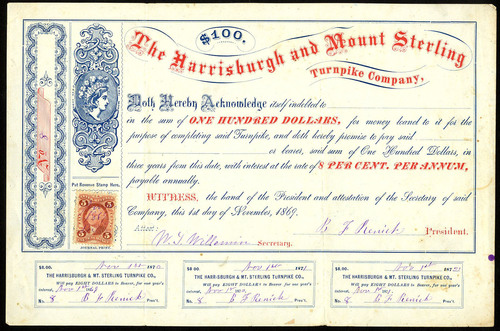 $100.
The Harrisburgh and Mount Sterling
Turnpike Company,
Doth Hereby Acknowledge itself indebted to
in the sum of ONE HUNDRED DOLLARS, for money loaned to it for the
purpose of completing said Turnpike, and doth hereby promise to pay said
or bearer, said sum of One Hundred Dollars, in
three years from this date, with interest at the rate of 8 PER CENT. PER ANNUM,
payable annually.
No 8
Put Revenue Stamp Here.
WITNESS, the hand of the President and attestation of the Secretary of said
Company, this 1st day of November, 1869.
B F Renick President.
Attest:
Secretary.
5 5
JOURNAL PRINT.
$8.00. Nov 1st 1870
THE HARRISBURGH & MT. STERLING TURNPIKE CO.,
Will pay EIGHT DOLLARS to Bearer, for one year's
interest, Nov 1st 1869
No. 8 B F Renick Pres't.
$8.00. Nov 1st 1871
THE HARRISBURGH & MT. STERLING TURNPIKE CO.,
Will pay EIGHT DOLLARS to Bearer, for one year's
interest, Nov 1st 1869
No. 8 B F Renick Pres't.
$8.00. Nov 1st 187
THE HARRISBURGH & MT. STERLING TURNPIKE CO.,
Will pay EIGHT DOLLARS to Bearer, for one year's
interest, Nov 1st 1869
No. 8 B F Renick Pres't.